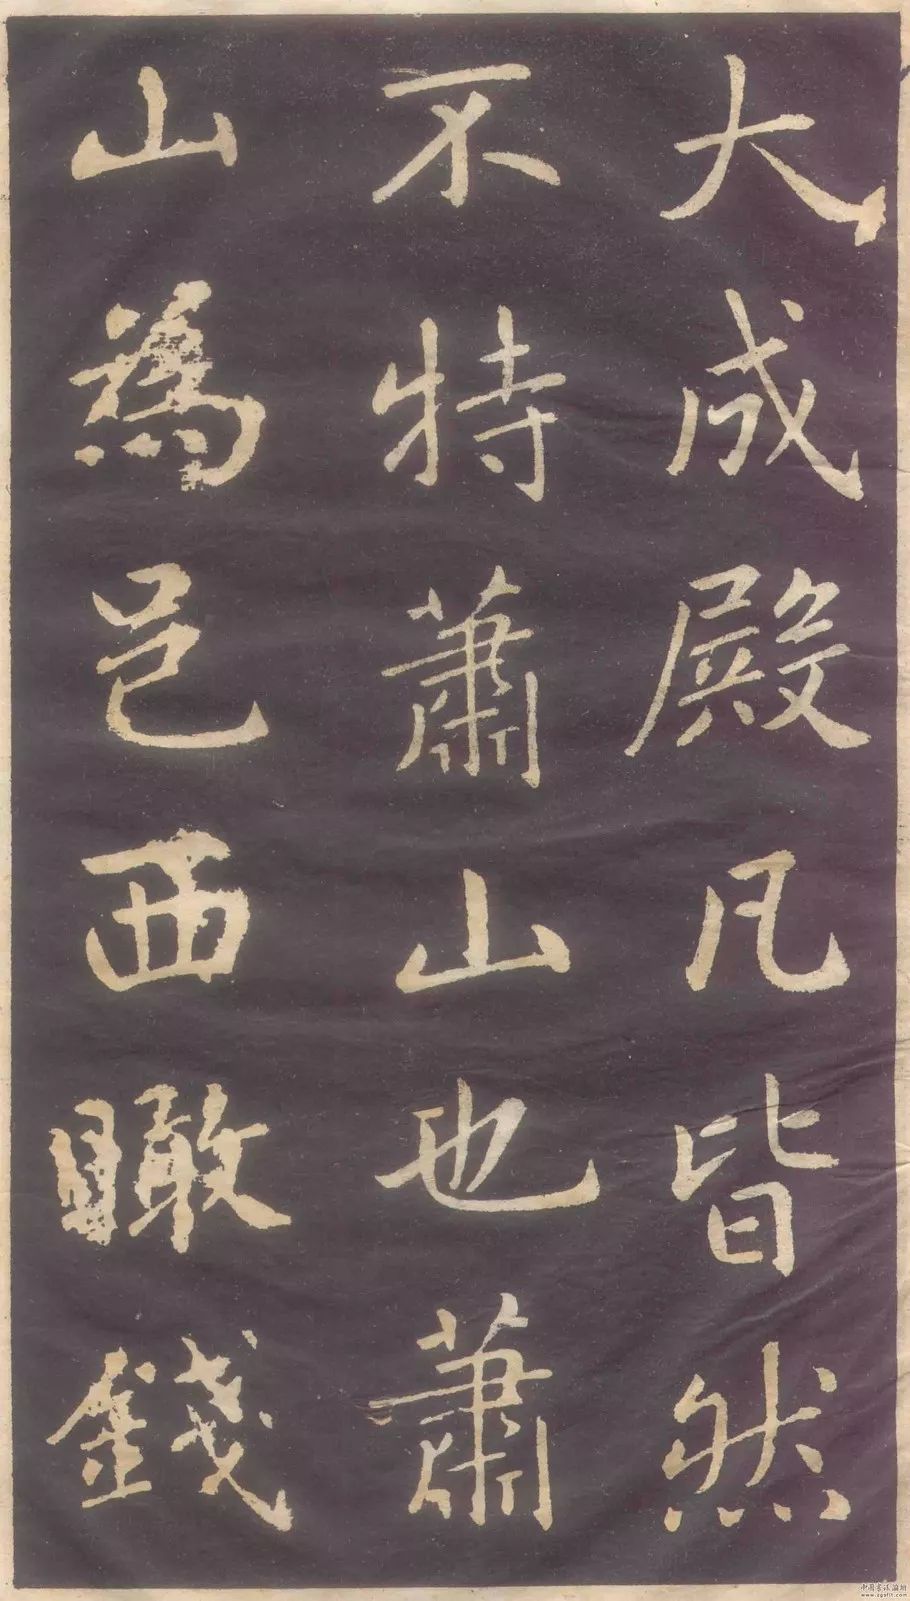 大成殿凡皆然
不特蕭山也蕭
山為邑西瞰錢
中國書法論壇
www.zgsflt.com